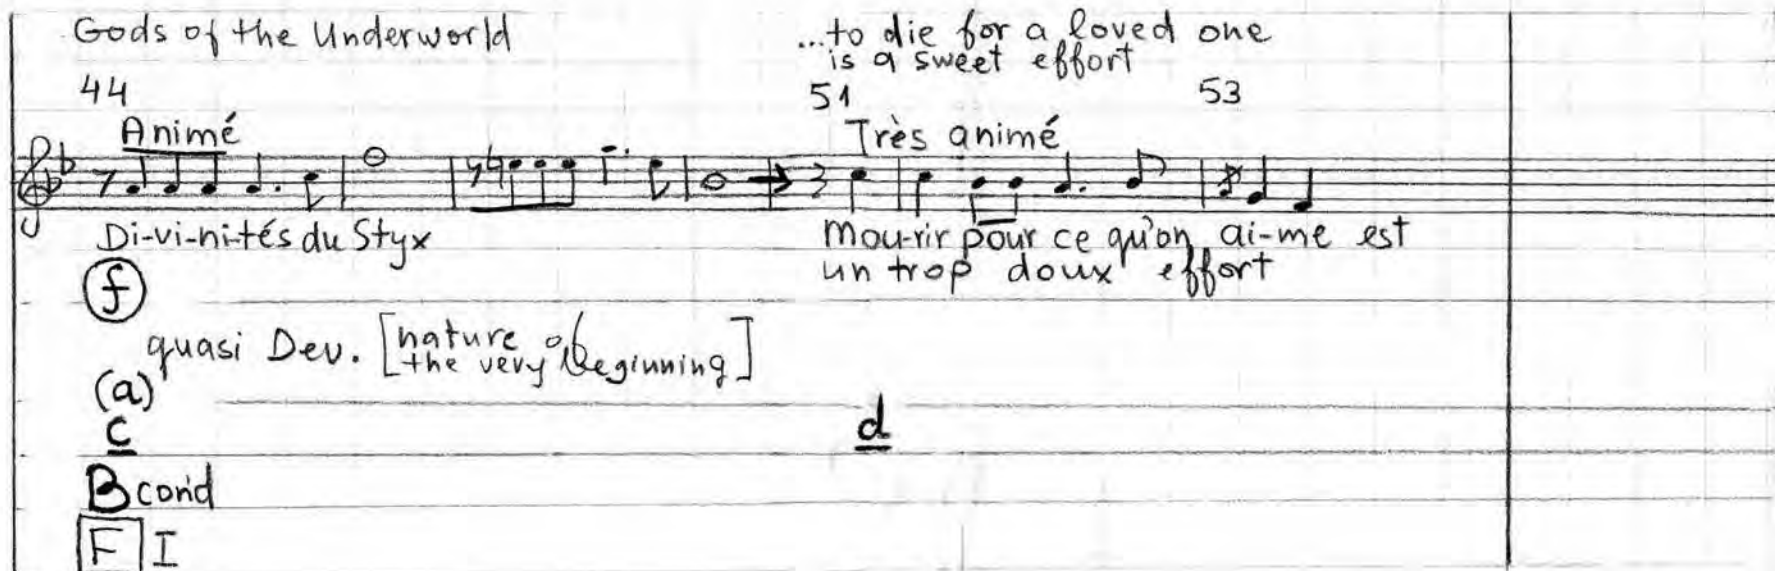 Gods of the Underworld
...to die for a loved one
is a sweet effort
44
51
53
Animé
Très animé
Di-vi-ni-tés du Styx
Mou-rir pour ce qu'on ai-me est
un trop doux effort
f
quasi Dev. [nature of
the very beginning]
(a)
c
d
B cond
F I